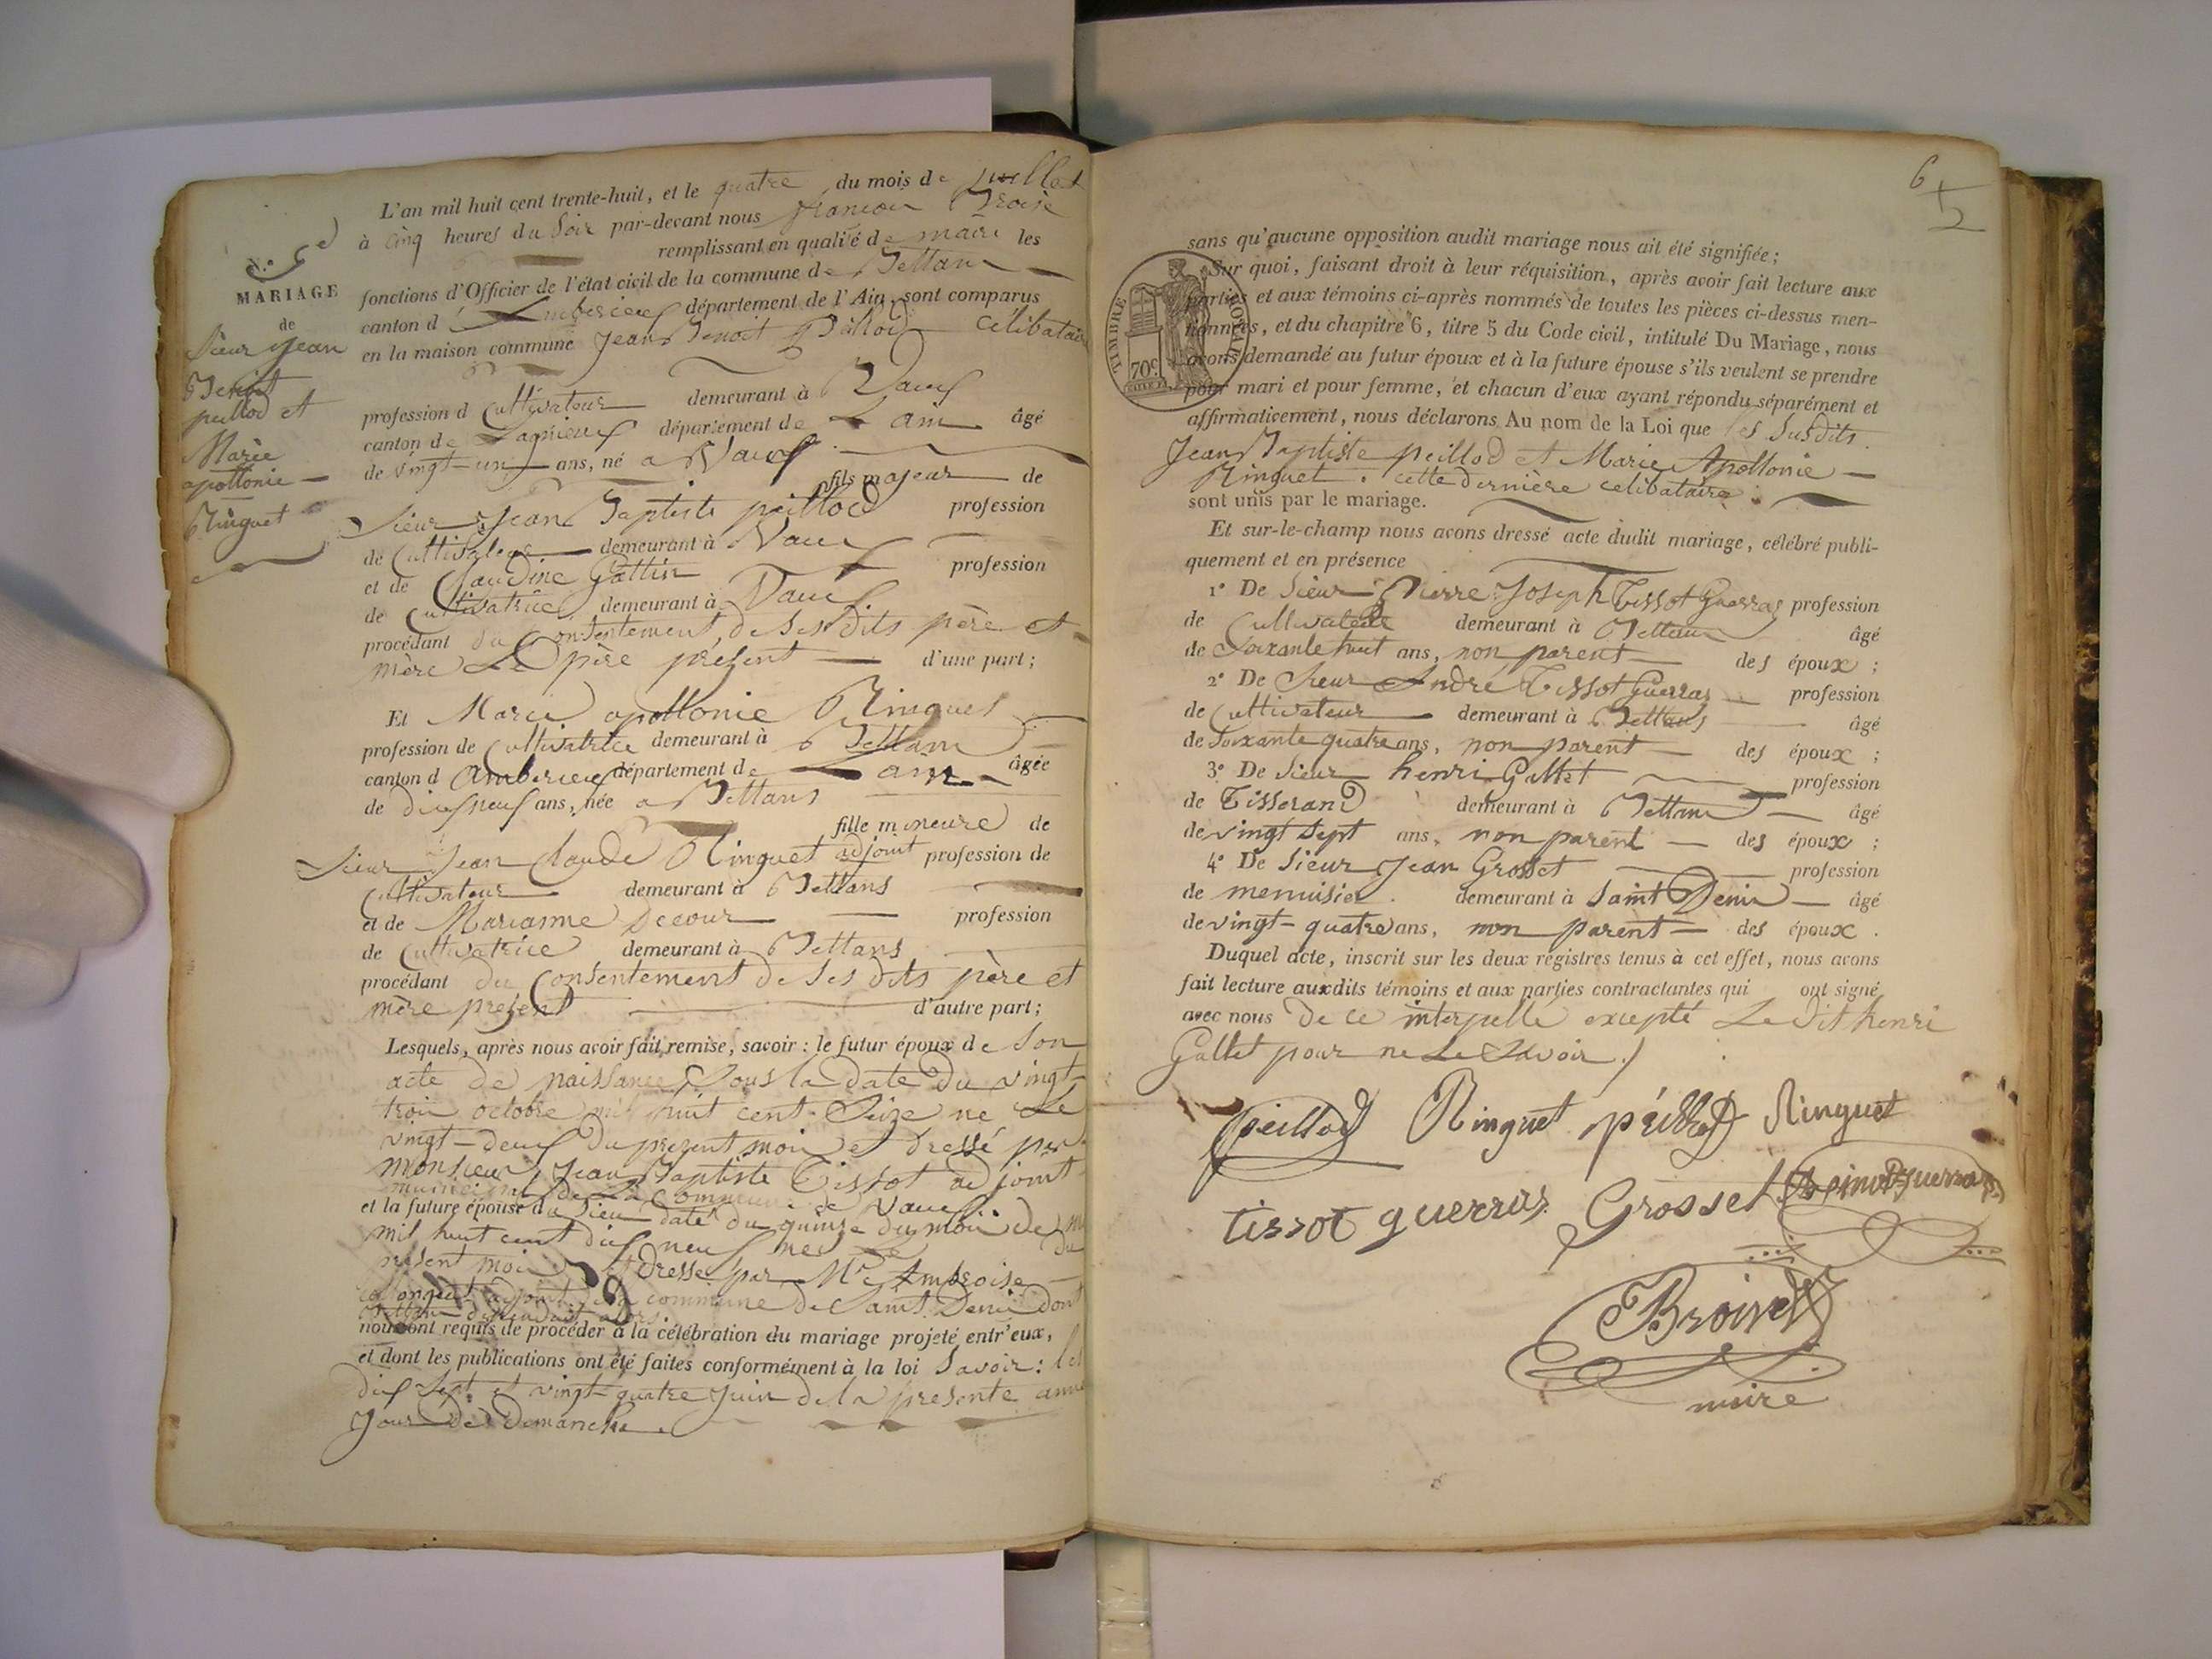 L'an mil huit cent trente-huit, et le quatre du mois de juillet
à cinq heures du soir par-devant nous françois Broise
remplissant en qualité de maire les
fonctions d'Officier de l'état civil de la commune de Bettans
canton d'Ambérieux département de l'Ain, sont comparus
en la maison commune Jean Benoit Peillod célibataire
N.o
MARIAGE
de
Sieur Jean
Benoit
peillod et
Marie
apollonie
Ringuet
profession d cultivateur demeurant à Vaux
canton de Lagnieux département de L'ain âgé
de vingt-un ans, né à Vaux
fils majeur de
Sieur Jean Baptiste peillod profession
de Cultivateur demeurant à Vaux
et de Claudine Gottin profession
de Cultivatrice demeurant à Vaux
procédant du Consentement de ses dits père et
mère Le père présent d'une part;
Et Marie apollonie Ringuet
profession de Cultivatrice demeurant à Bettans
canton d'Ambérieux département de L'ain âgée
de dixneuf ans, née à Bettans
fille mineure de
Sieur Jean Claude Ringuet adjoint profession de
Cultivateur demeurant à Bettans
et de Marianne Decour profession
de Cultivatrice demeurant à Bettans
procédant du Consentement de ses dits père et
mère présent d'autre part;
Lesquels, après nous avoir fait remise, savoir: le futur époux de son
acte de naissance sous la date du vingt-
trois octobre mil huit cent Seize né Le
vingt-deux du present mois et dressé par
monsieur Jean Baptiste Tissot adjoint
municipal de La Commune de Vaux
et la future épouse du sien daté du quinze du mois de
mil huit cent dix neuf née Le du
présent mois dressé par Mr Ambroise
adjoint de la commune de Saint Denis dont
Bettans
nous ont requis de procéder à la célébration du mariage projeté entr'eux,
et dont les publications ont été faites conformément à la loi Savoir: les
dix Sept et vingt-quatre Juin de la présente année
Jour de demanche
6
12
TIMBRE ROYAL
70c
sans qu'aucune opposition audit mariage nous ait été signifiée;
Sur quoi, faisant droit à leur réquisition, après avoir fait lecture aux
parties et aux témoins ci-après nommés de toutes les pièces ci-dessus men-
tionnées, et du chapitre 6, titre 5 du Code civil, intitulé Du Mariage, nous
avons demandé au futur époux et à la future épouse s'ils veulent se prendre
pour mari et pour femme, et chacun d'eux ayant répondu séparément et
affirmativement, nous déclarons Au nom de la Loi que les Susdits
Jean Baptiste peillod et Marie Apollonie
Ringuet. cette dernière celibataire
sont unis par le mariage.
Et sur-le-champ nous avons dressé acte dudit mariage, célébré publi-
quement et en présence
1° De Sieur Pierre Joseph Tissot Guerras profession
de Cultivateur demeurant à Bettans âgé
de Soixante huit ans, non parent des époux;
2° De Sieur André Tissot Guerras profession
de Cultivateur demeurant à Bettans âgé
de Soixante quatre ans, non parent des époux;
3° De Sieur henri Gallet profession
de Tisserand demeurant à Bettans âgé
de vingt sept ans, non parent des époux;
4° De Sieur Jean Grosset profession
de menuisier demeurant à Saint Denis âgé
de vingt-quatre ans, non parent des époux.
Duquel acte, inscrit sur les deux régistres tenus à cet effet, nous avons
fait lecture auxdits témoins et aux parties contractantes qui ont signé
avec nous de ce interpellé excepté Le dit henri
Gallet pour ne Le Savoir./
peillod Ringuet péillod Ringuet
tissot guerras Grosset
Broise
maire